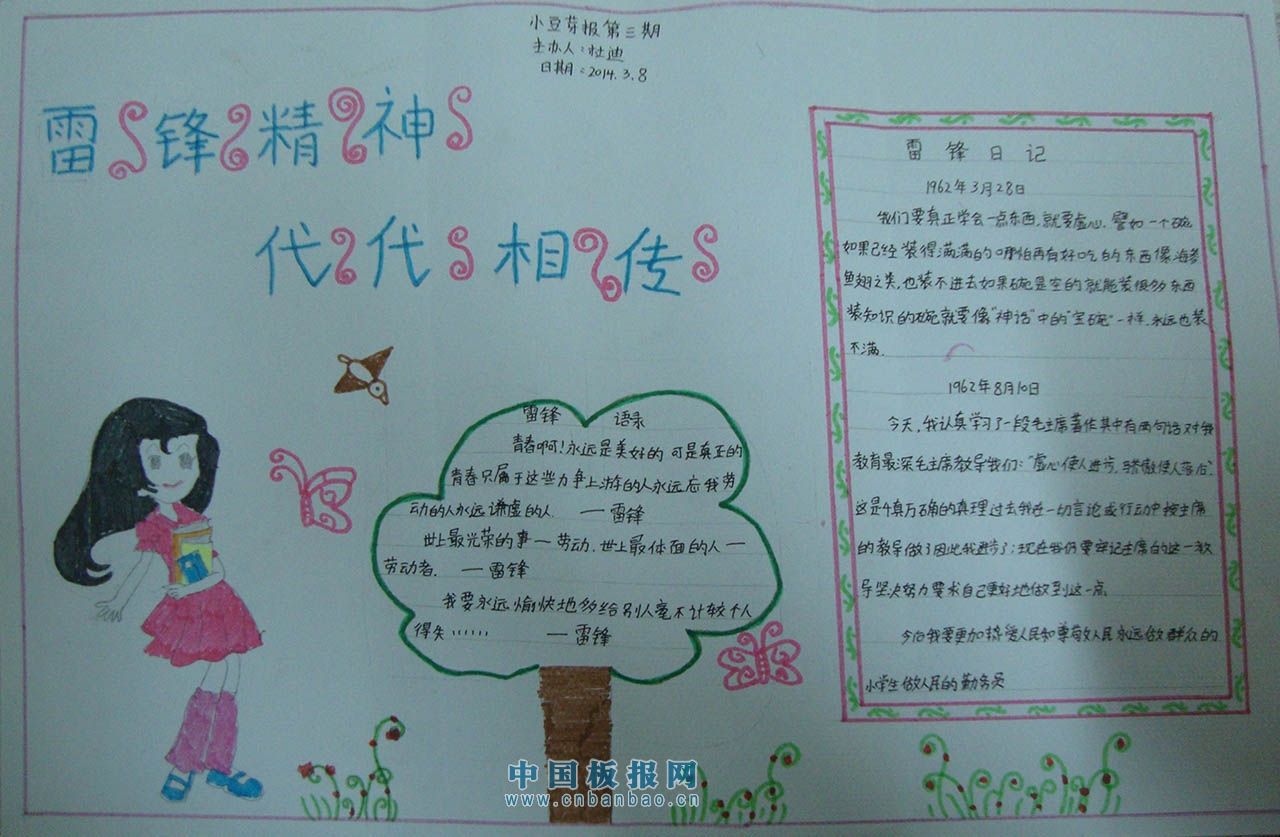 小豆芽报第三期
主办人：杜迪
日期：2014.3.8
雷锋精神
代代相传
雷锋 语录
青春啊！永远是美好的 可是真正的
青春只属于这些力争上游的人永远忘我劳
动的人永远谦虚的人. 一雷锋
世上最光荣的事一劳动.世上最体面的人一
劳动者. 一雷锋
我要永远愉快地多给别人毫不计较个人
得失…… 一雷锋
雷锋日记
1962年3月28日
我们要真正学会一点东西,就要虚心.譬如一个碗
如果已经装得满满的哪怕再有好吃的东西像海参
鱼翅之类,也装不进去如果碗是空的就能装很多东西
装知识的碗就要像"神话"中的"宝碗"一样.永远也装
不满.
1962年8月10日
今天,我认真学习了一段毛主席著作其中有两句话对我
教育最深毛主席教导我们:"虚心使人进步,骄傲使人落后".
这是千真万确的真理过去我在一切言论或行动中按主席
的教导做了因此我进步了;现在我仍要牢记主席的这一教
导坚决努力要求自己更好地做到这一点
今后我要更加热爱人民和尊敬人民永远做群众的
小学生做人民的勤务员
中国板报网
www.cnbanbao.cn